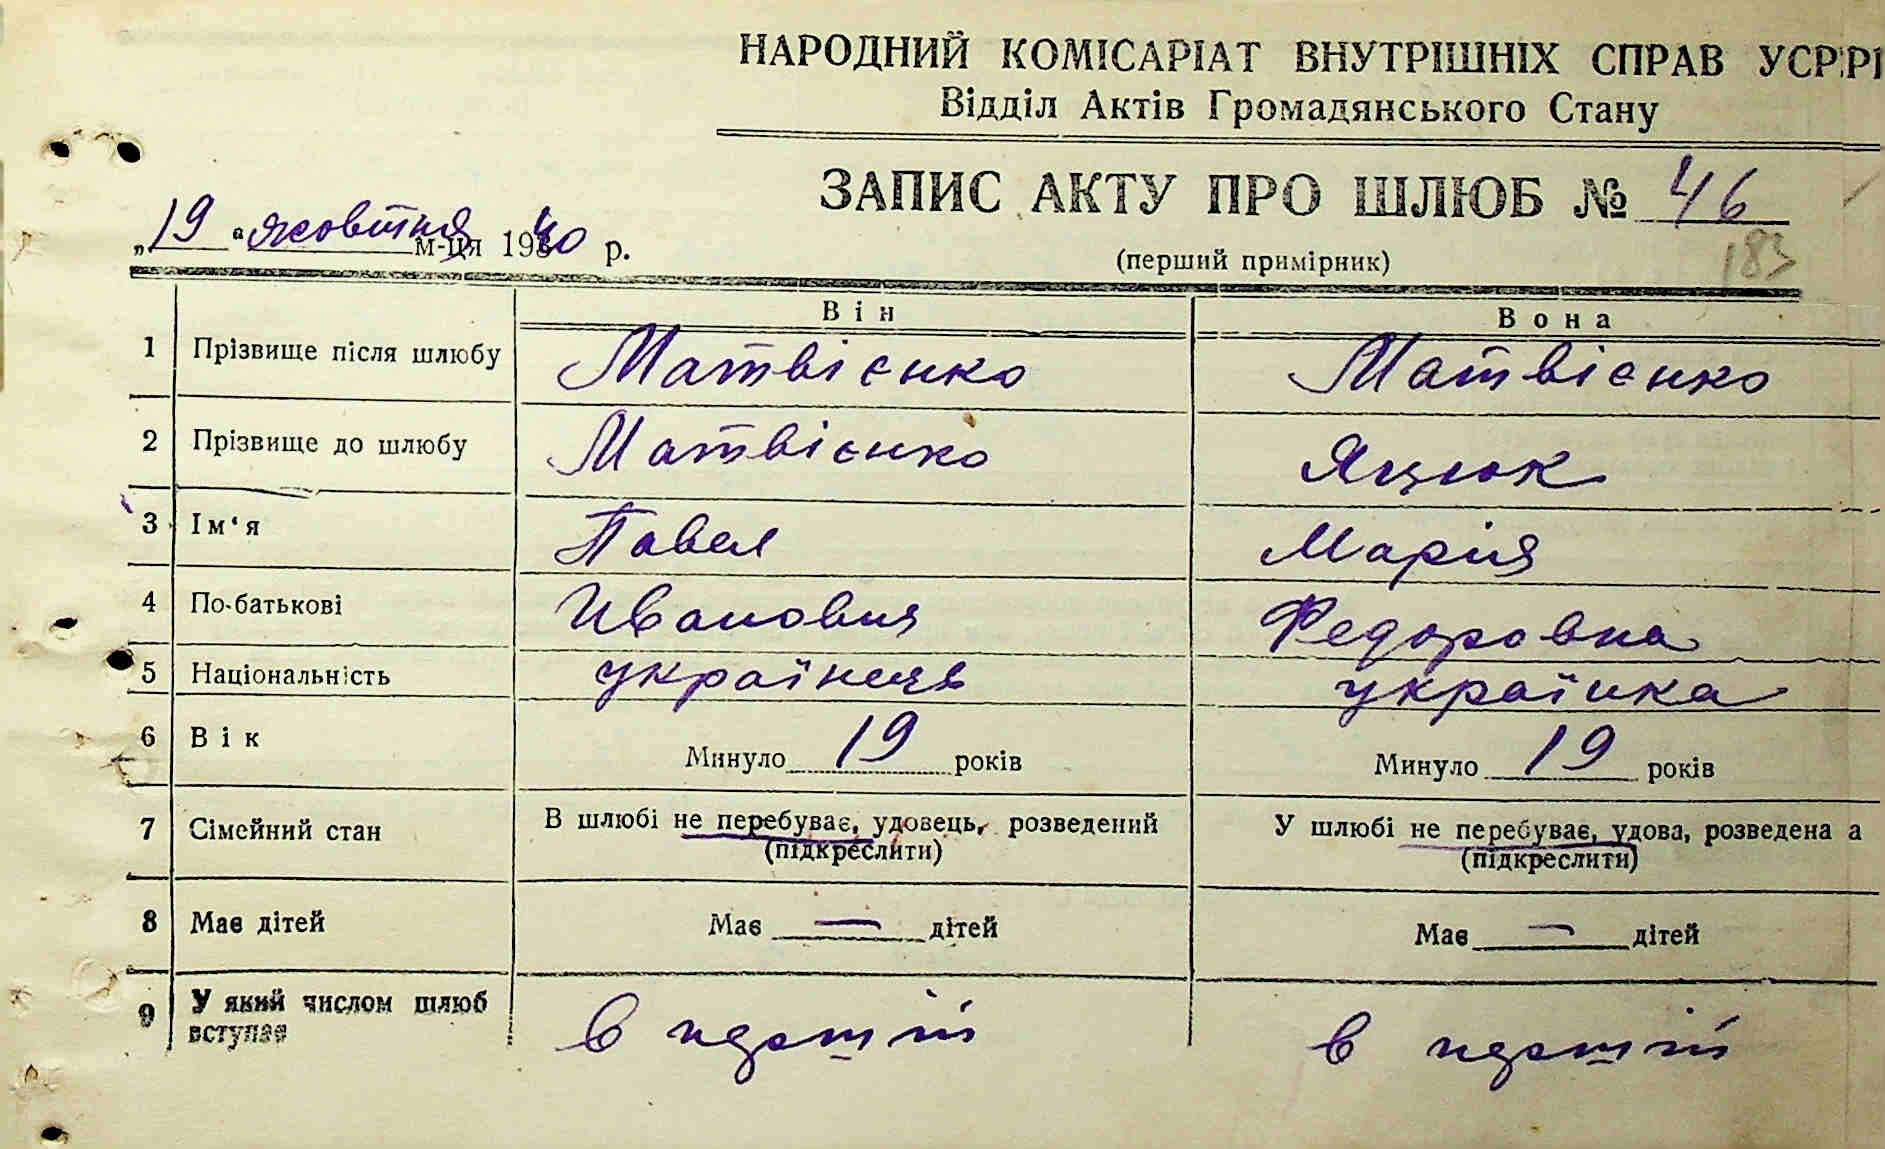 НАРОДНИЙ КОМІСАРІАТ ВНУТРІШНІХ СПРАВ УСРР
Відділ Актів Громадянського Стану
ЗАПИС АКТУ ПРО ШЛЮБ № 46
„19“ жовтня м-ця 1940 р.
(перший примірник)
183
Він Вона
1 Прізвище після шлюбу Матвієнко Матвієнко
2 Прізвище до шлюбу Матвієнко Яцюк
3 Ім‘я Павел Марія
4 По-батькові Ивановия Федоровна
5 Національність українець українка
6 Вік Минуло 19 років Минуло 19 років
7 Сімейний стан В шлюбі не перебуває, удовець, розведений У шлюбі не перебуває, удова, розведена а
(підкреслити) (підкреслити)
8 Має дітей Має — дітей Має — дітей
9 У який числом шлюб
вступає
в первий в первий